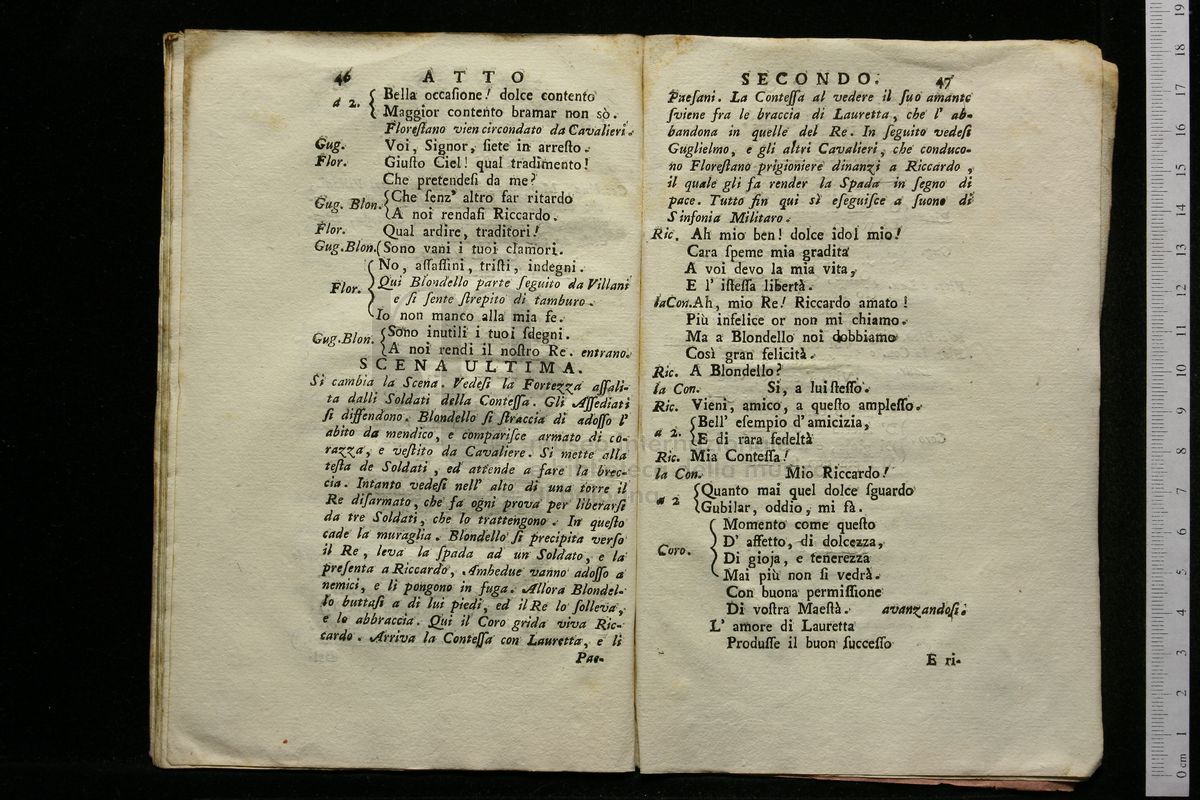 46 ATTO
a 2. { Bella occaſione! dolce contento
Maggior contento bramar non sò.
Floreſtano vien circondato da Cavalieri.
Gug. Voi, Signor, ſiete in arreſto.
Flor. Giuſto Ciel! qual tradimento!
Che pretendeſi da me?
Gug. Blon. { Che ſenz' altro far ritardo
A noi rendaſi Riccardo.
Flor. Qual ardire, traditori!
Gug.Blon.(Sono vani i tuoi clamori.
Flor. { No, aſſaſſini, triſti, indegni.
Qui Blondello parte ſeguito da Villani
e ſi ſente ſtrepito di tamburo.
Io non manco alla mia fe.
Gug.Blon. { Sono inutili i tuoi ſdegni.
A noi rendi il noſtro Re. entrano.
SCENA ULTIMA.
Si cambia la Scena. Vedeſi la Fortezza aſſali-
ta dalli Soldati della Conteſſa. Gli Aſſediati
ſi diffendono. Blondello ſi ſtraccia di adoſſo l'
abito da mendico, e compariſce armato di co-
razza, e veſtito da Cavaliere. Si mette alla
teſta de Soldati, ed attende a fare la brec-
cia. Intanto vedeſi nell' alto di una torre il
Re diſarmato, che fa ogni prova per liberarſi
da tre Soldati, che lo trattengono. In queſto
cade la muraglia. Blondello ſi precipita verſo
il Re, leva la ſpada ad un Soldato, e la
preſenta a Riccardo, Ambedue vanno adoſſo a
nemici, e li pongono in fuga. Allora Blondel-
lo buttaſi a di lui piedi, ed il Re lo ſolleva,
e lo abbraccia. Qui il Coro grida viva Ric-
cardo. Arriva la Conteſſa con Lauretta, e li
Pae-
SECONDO. 47
Paeſani. La Conteſſa al vedere il ſuo amante
ſviene fra le braccia di Lauretta, che l' ab-
bandona in quelle del Re. In ſeguito vedeſi
Guglielmo, e gli altri Cavalieri, che conduco-
no Floreſtano prigioniere dinanzi a Riccardo,
il quale gli fa render la Spada in ſegno di
pace. Tutto fin qui ſi eſeguiſce a ſuono di
Sinfonia Militaro.
Ric. Ah mio ben! dolce idol mio!
Cara ſpeme mia gradita
A voi devo la mia vita,
E l' iſteſſa libertà.
la Con. Ah, mio Re! Riccardo amato!
Più infelice or non mi chiamo.
Ma a Blondello noi dobbiamo
Così gran felicità.
Ric. A Blondello?
la Con. Si, a lui ſteſſo.
Ric. Vieni, amico, a queſto ampleſſo.
a 2. { Bell' eſempio d'amicizia,
E di rara fedeltà
Ric. Mia Conteſſa!
la Con. Mio Riccardo!
a 2 { Quanto mai quel dolce ſguardo
Gubilar, oddio, mi fà.
Coro. { Momento come queſto
D' affetto, di dolcezza,
Di gioja, e tenerezza
Mai più non ſi vedrà.
Con buona permiſſione
Di voſtra Maeſtà. avanzandoſi.
L' amore di Lauretta
Produſſe il buon ſucceſſo
E ri-
0 cm 1 2 3 4 5 6 7 8 9 10 11 12 13 14 15 16 17 18 19